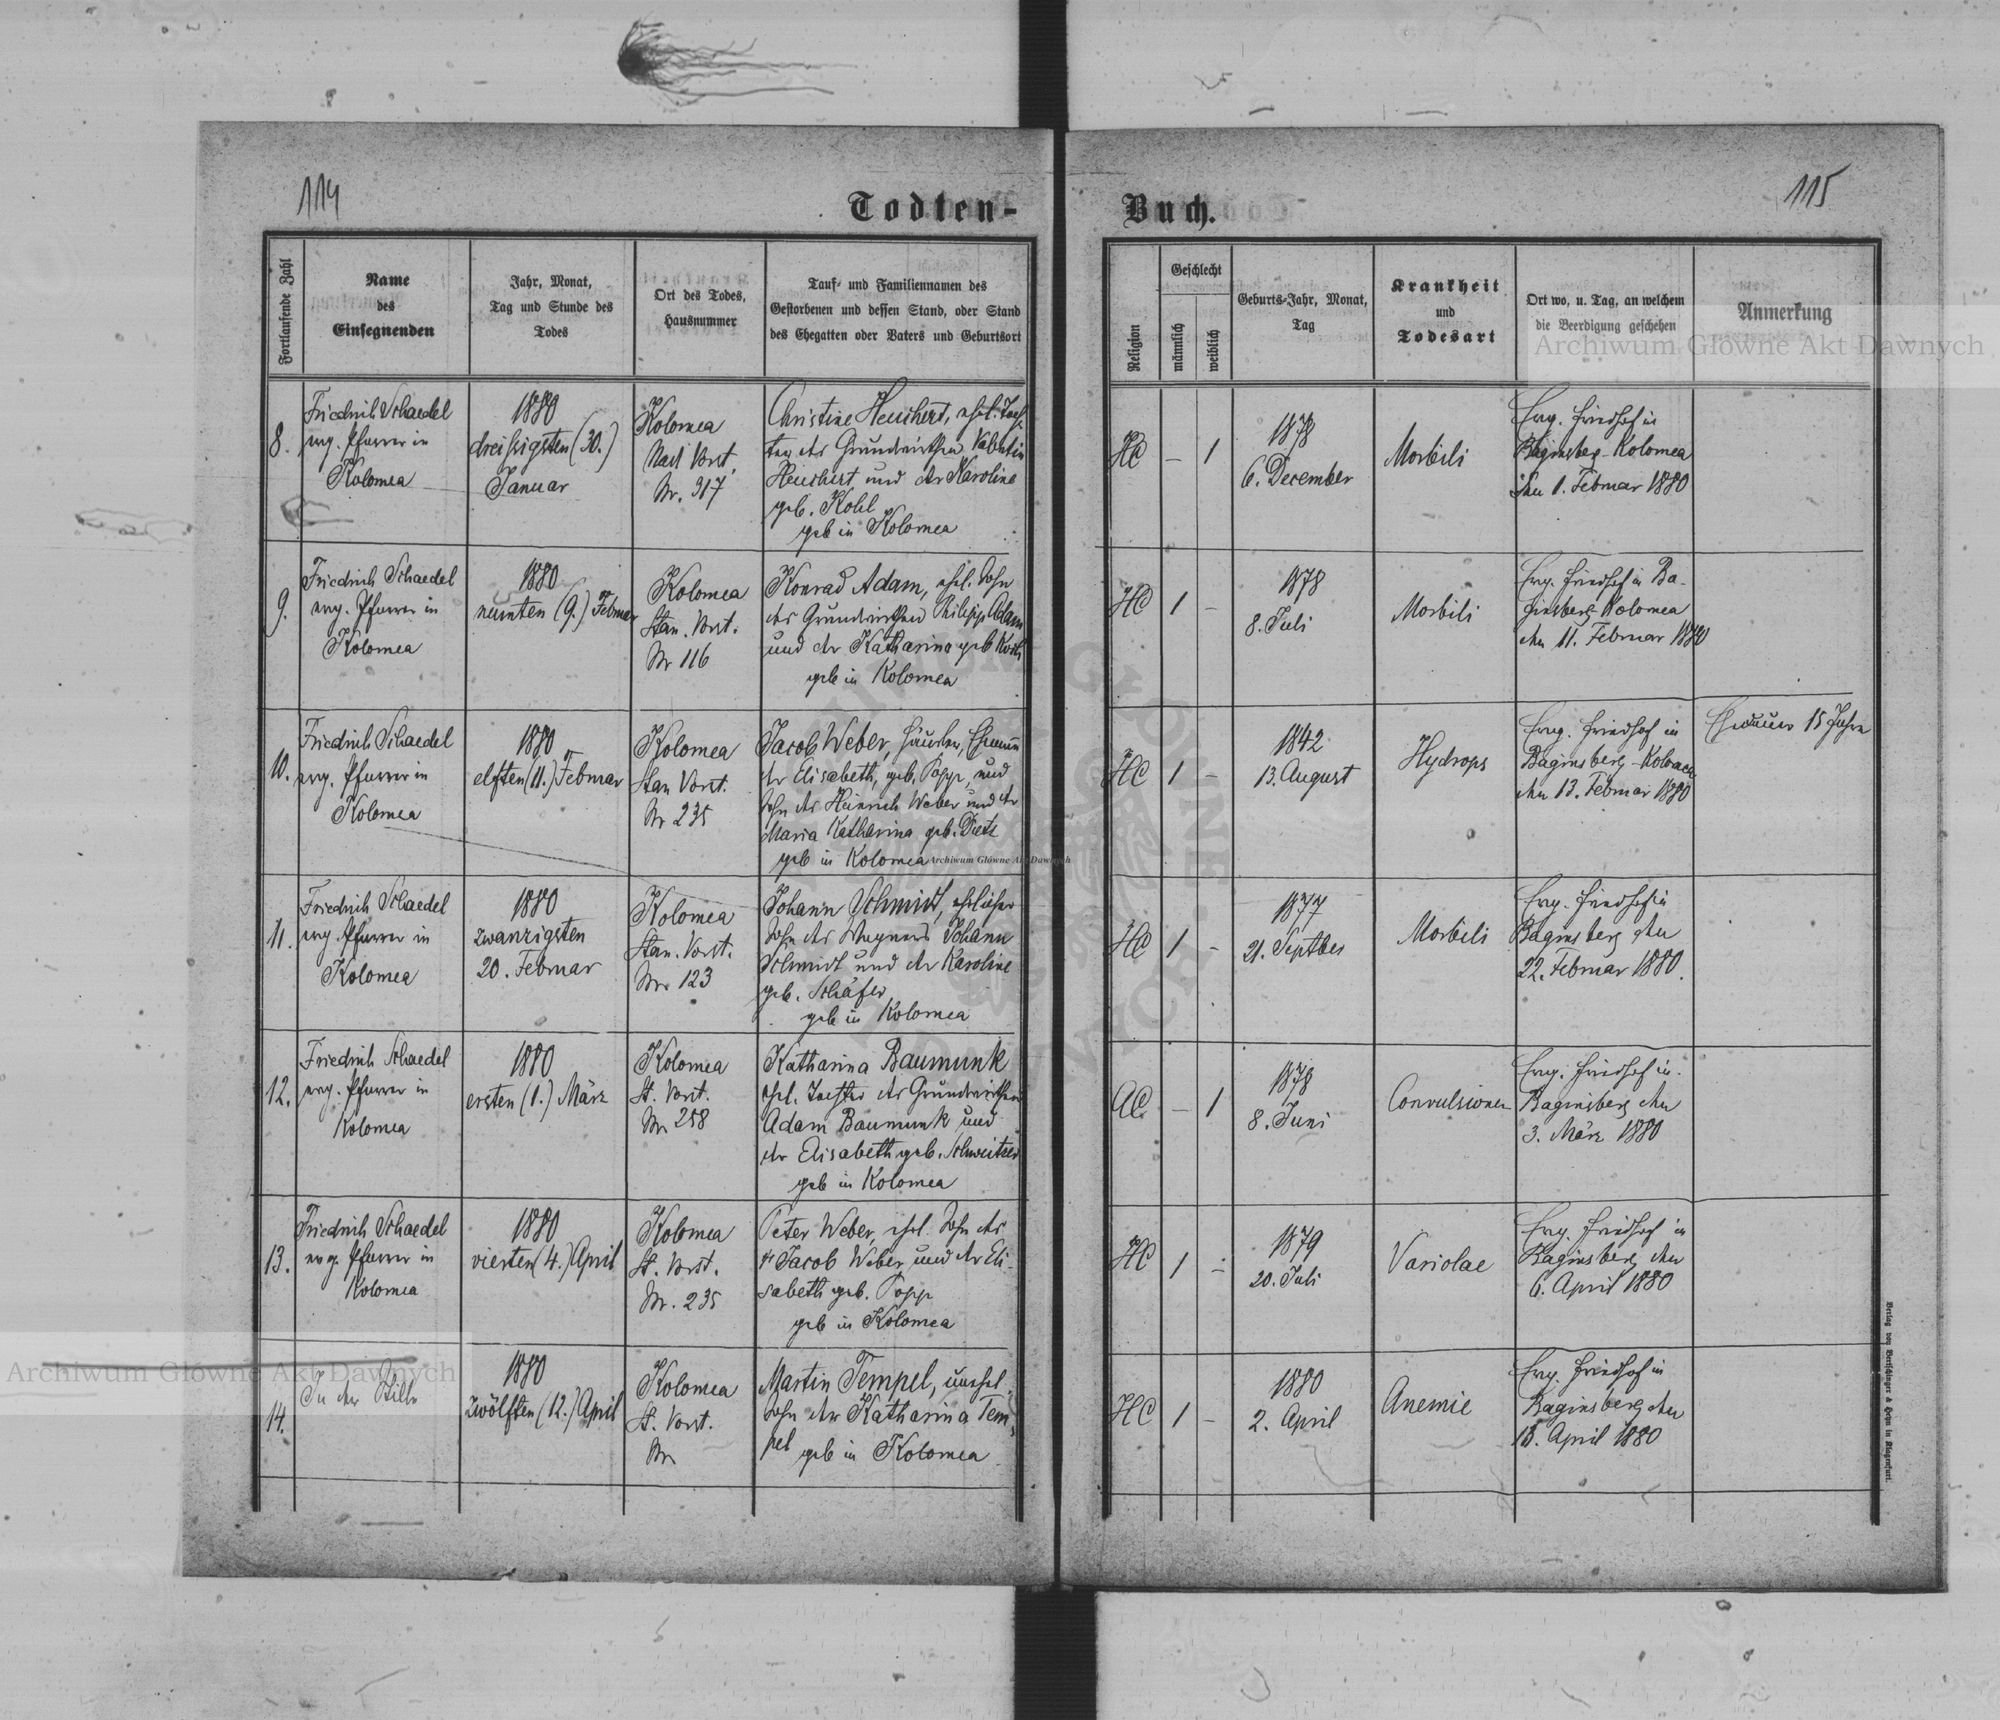 114
Todten-
Fortlaufende Zahl
Name
des
Einsegnenden
Jahr, Monat,
Tag und Stunde des
Todes
Ort des Todes,
Hausnummer
Tauf- und Familiennamen des
Gestorbenen und dessen Stand, oder Stand
des Ehegatten oder Vaters und Geburtsort
8.
Friedrich Schaedel
evg. Pfarrer in
Kolomea
1880
dreißigsten (30.)
Januar
Kolomea
Vorst.
Nr. 317
Christine Heuchert, ehl. Toch-
ter des Grundwirthen Valentin
Heuchert und der Karoline
geb. Kohl
geb in Kolomea
9.
Friedrich Schaedel
evg. Pfarrer in
Kolomea
1880
neunten (9.) Februar
Kolomea
Stan. Vorst.
Nr 116
Konrad Adam, ehl. Sohn
des Grundwirthen Philipp Adam
und der Katharina geb
geb in Kolomea
10.
Friedrich Schaedel
evg. Pfarrer in
Kolomea
1880
elften (11.) Februar
Kolomea
Stan Vorst.
Nr 235
Jacob Weber, Häusler, Ehemann
der Elisabeth, geb. Popp, und
Sohn des Heinrich Weber und der
Maria Katharina geb. Dietz
geb in Kolomea
11.
Friedrich Schaedel
evg. Pfarrer in
Kolomea
1880
zwanzigsten
20. Februar
Kolomea
Stan. Vorst.
Nr. 123
Johann Schmidt, ehlicher
Sohn des Wagners Johann
Schmidt und der Karoline
geb. Schäfer
geb in Kolomea
12.
Friedrich Schaedel
evg. Pfarrer in
Kolomea
1880
ersten (1.) März
Kolomea
St. Vorst.
Nr 258
Katharina Baumunk
ehl. Tochter des Grundwirthen
Adam Baumunk und
der Elisabeth geb. Schweitzer
geb in Kolomea
13.
Friedrich Schaedel
evg. Pfarrer in
Kolomea
1880
vierten (4.) April
Kolomea
St. Vorst.
Nr. 235
Peter Weber, ehl. Sohn des
† Jacob Weber und der Eli-
sabeth geb. Popp
geb in Kolomea
14.
In der Stille
1880
zwölften (12.) April
Kolomea
St. Vorst.
Nr
Martin Tempel, unehel.
Sohn der Katharina Tem-
pel geb in Kolomea
115
Buch.
Religion
Geschlecht
männlich
weiblich
Geburts-Jahr, Monat,
Tag
Krankheit
und
Todesart
Ort wo, u. Tag, an welchem
die Beerdigung geschehen
Anmerkung
HC
–
1
1878
6. December
Morbili
Evg. Friedhof in
Baginsberg-Kolomea
den 1. Februar 1880
HC
1
–
1878
8. Juli
Morbili
Evg. Friedhof in Ba-
ginsberg-Kolomea
den 11. Februar 1880
HC
1
–
1842
13. August
Hydrops
Evg. Friedhof in
Baginsberg-Kolomea
den 13. Februar 1880
Ehedauer 15 Jahre
HC
1
–
1877
21. Septber
Morbili
Evg. Friedhof in
Baginsberg den
22. Februar 1880.
AC.
–
1
1878
8. Juni
Convulsionen
Evg. Friedhof in
Baginsberg den
3. März 1880
HC
1
–
1879
20. Juli
Variolae
Evg. Friedhof in
Baginsberg den
6. April 1880
HC
1
–
1880
2. April
Anemie
Evg. Friedhof in
Baginsberg den
13. April 1880
Verlag von Bertschinger & Heyn in Klagenfurt.
Archiwum Główne Akt Dawnych
Archiwum Główne Akt Dawnych
Archiwum Główne Akt Dawnych